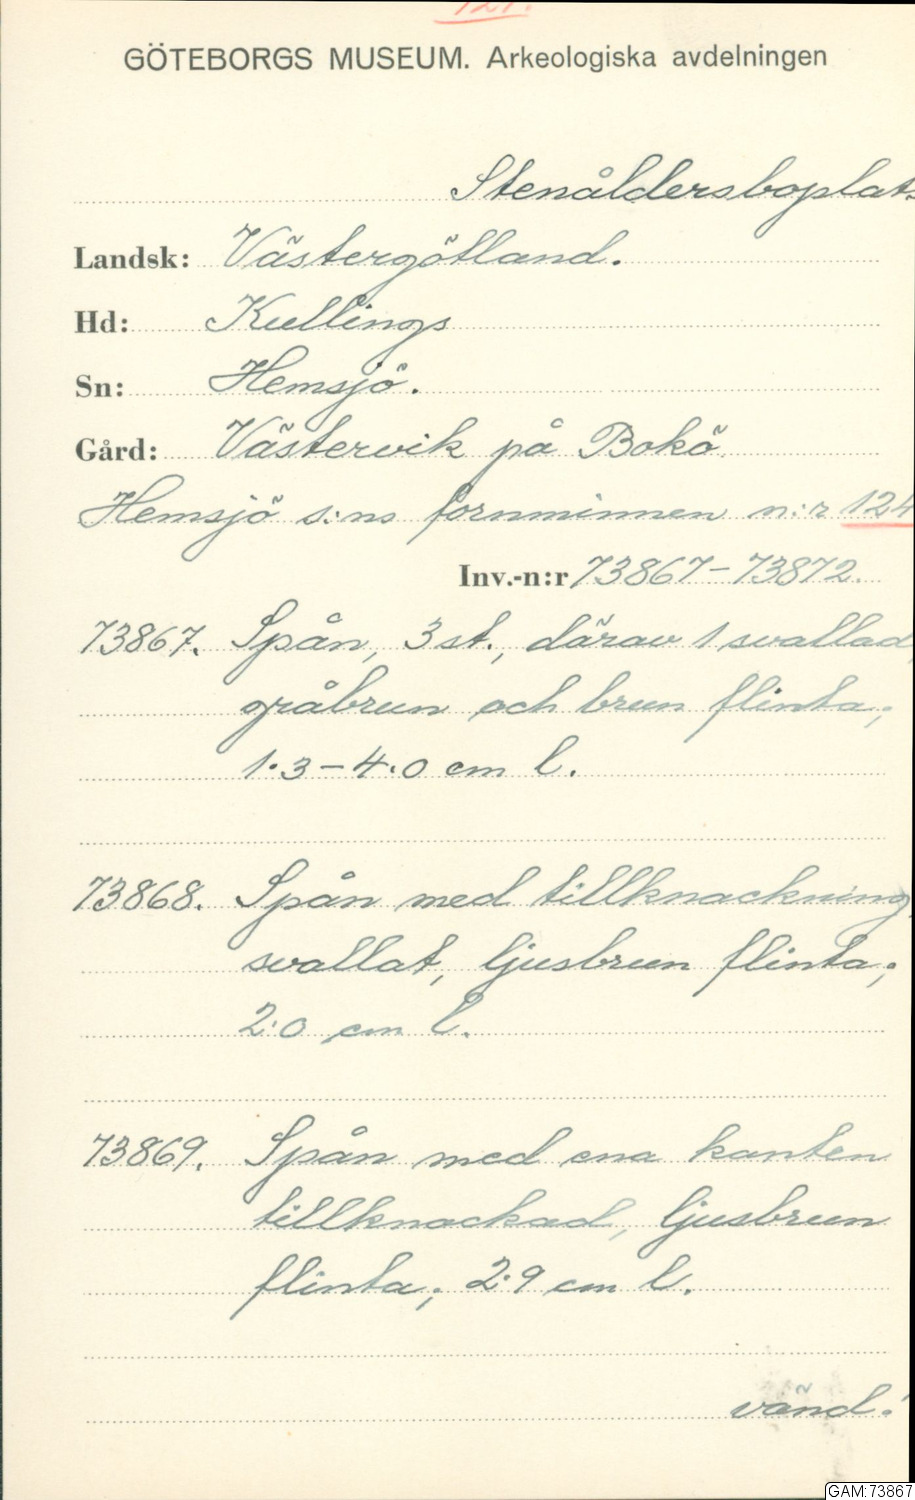 121.
GÖTEBORGS MUSEUM. Arkeologiska avdelningen
Stenåldersboplats
Landsk: Västergötland.
Hd: Kullings
Sn: Hemsjö.
Gård: Västervik på Bokö.
Hemsjö s:ns fornminnen n:r 124
Inv.-n:r 73867-73872.
73867. Spån, 3 st., därav 1 svallad,
gråbrun och brun flinta;
1.3-4.0 cm l.
73868. Spån med tillknackning,
svallat, ljusbrun flinta;
2.0 cm l.
73869. Spån med ena kanten
tillknackad, ljusbrun
flinta; 2.9 cm l.
vänd!
GAM:73867